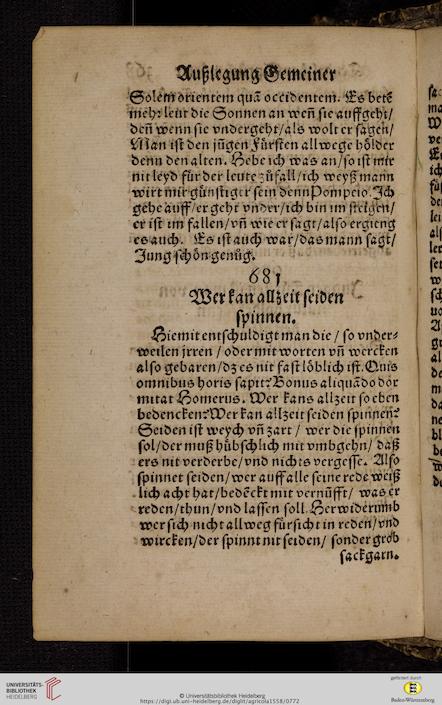 Außlegung Gemeiner
Solem orientem quā occidentem. Es betē
mehr leut die Sonnen an weñ sie auffgeht/
deñ wenn sie vndergeht/als wolt er sagen/
Man ist den jūgen Fürsten allwege hölder
denn den alten. Hebe ich was an/so ist mir
nit leyd für der leute zůfall/ich weyß mann
wirt mir günstiger sein denn Pompeio. Ich
gehe auff/er geht vnder/ich bin im steigen/
er ist im fallen/vñ wie er sagt/also ergieng
es auch. Es ist auch war/das mann sagt/
Jung schön genůg.
681
Wer kan allzeit seiden
spinnen.
Hiemit entschuldigt man die / so vnder-
weilen jrren / oder mit worten vñ wercken
also gebaren/dz es nit fast löblich ist. Quis
omnibus horis sapit? Bonus aliquādo dor
mitat Homerus. Wer kans allzeit so eben
bedencken? Wer kan allzeit seiden spinnen?
Seiden ist weych vñ zart / wer die spinnen
sol/der muß hübschlich mit vmbgehn/ daß
ers nit verderbe/vnd nichts vergesse. Also
spinnet seiden/wer auff alle seine rede weiß
lich acht hat/bedēckt mit vernüfft/ was er
reden/thun/vnd lassen soll. Herwiderumb
wer sich nicht allweg fürsicht in reden/vnd
wircken/der spinnt nit seiden/ sonder grob
sackgarn.
UNIVERSITÄTS-
BIBLIOTHEK
HEIDELBERG
© Universitätsbibliothek Heidelberg
https://digi.ub.uni-heidelberg.de/diglit/agricola1558/0772
gefördert durch
Baden-Württemberg